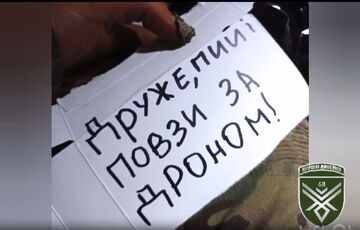 ДРУЖЕ, ПИЙ І
ПОВЗИ ЗА
ДРОНОМ!
60